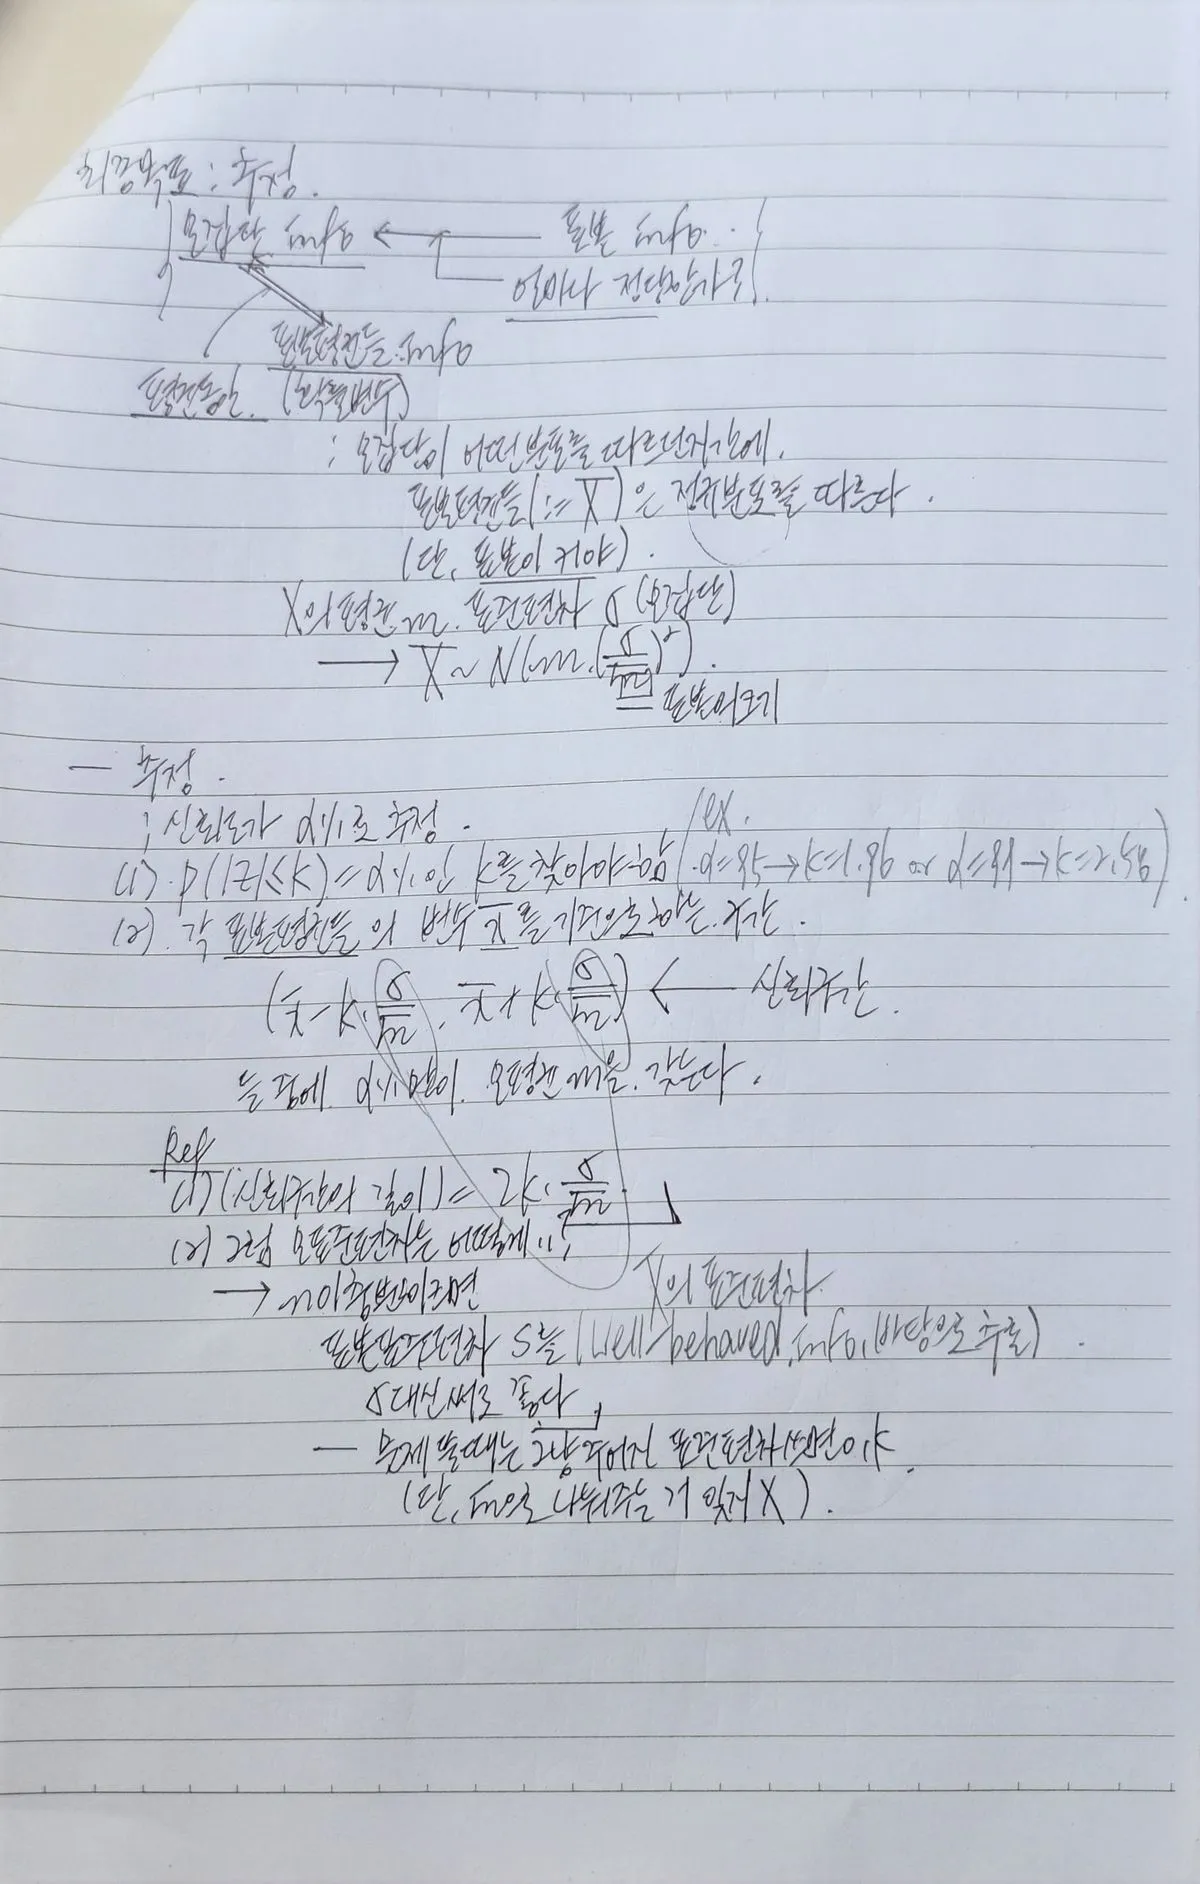 최종목표 : 추정.
모집단 info ← 표본 info..
얼마나 정당한가?
표본평균들 info
평균동일. (확률변수)
; 모집단이 어떤분포를 따르던지간에.
표본평균들(:= X̄)은 정규분포를 따른다.
(단, 표본이 커야).
X의 평균 m. 표준편차 σ (모집단)
→ X̄ ~ N(m.(σ/√n)²).
표본의크기
— 추정.
; 신뢰도가 α%로 추정.
(1). P(|Z|≤K)=α%인 K를 찾아야함 / ex.
(. α=95→K=1.96 or α=99→K=2.58)
(2). 각 표본평균들의 변수 x̄를 기준으로하는.구간.
(x̄-K.σ/√n. x̄+K.σ/√n) ← 신뢰구간.
들 중에. α%만이. 모평균 m을. 갖는다.
Ref
(1) (신뢰구간의 길이)= 2K.σ/√n.
(2) 그럼 모표준편차는 어떻게";
X̄의 표준편차.
→ n이충분히크면
표본표준편차 S를 (well-behaved.info.(바탕으로 추출).
σ대신써도 좋다,
— 문제 풀때는 그냥 주어진 표준편차쓰면 o.k.
(단, √n으로 나눠주는 거 잊지 X).